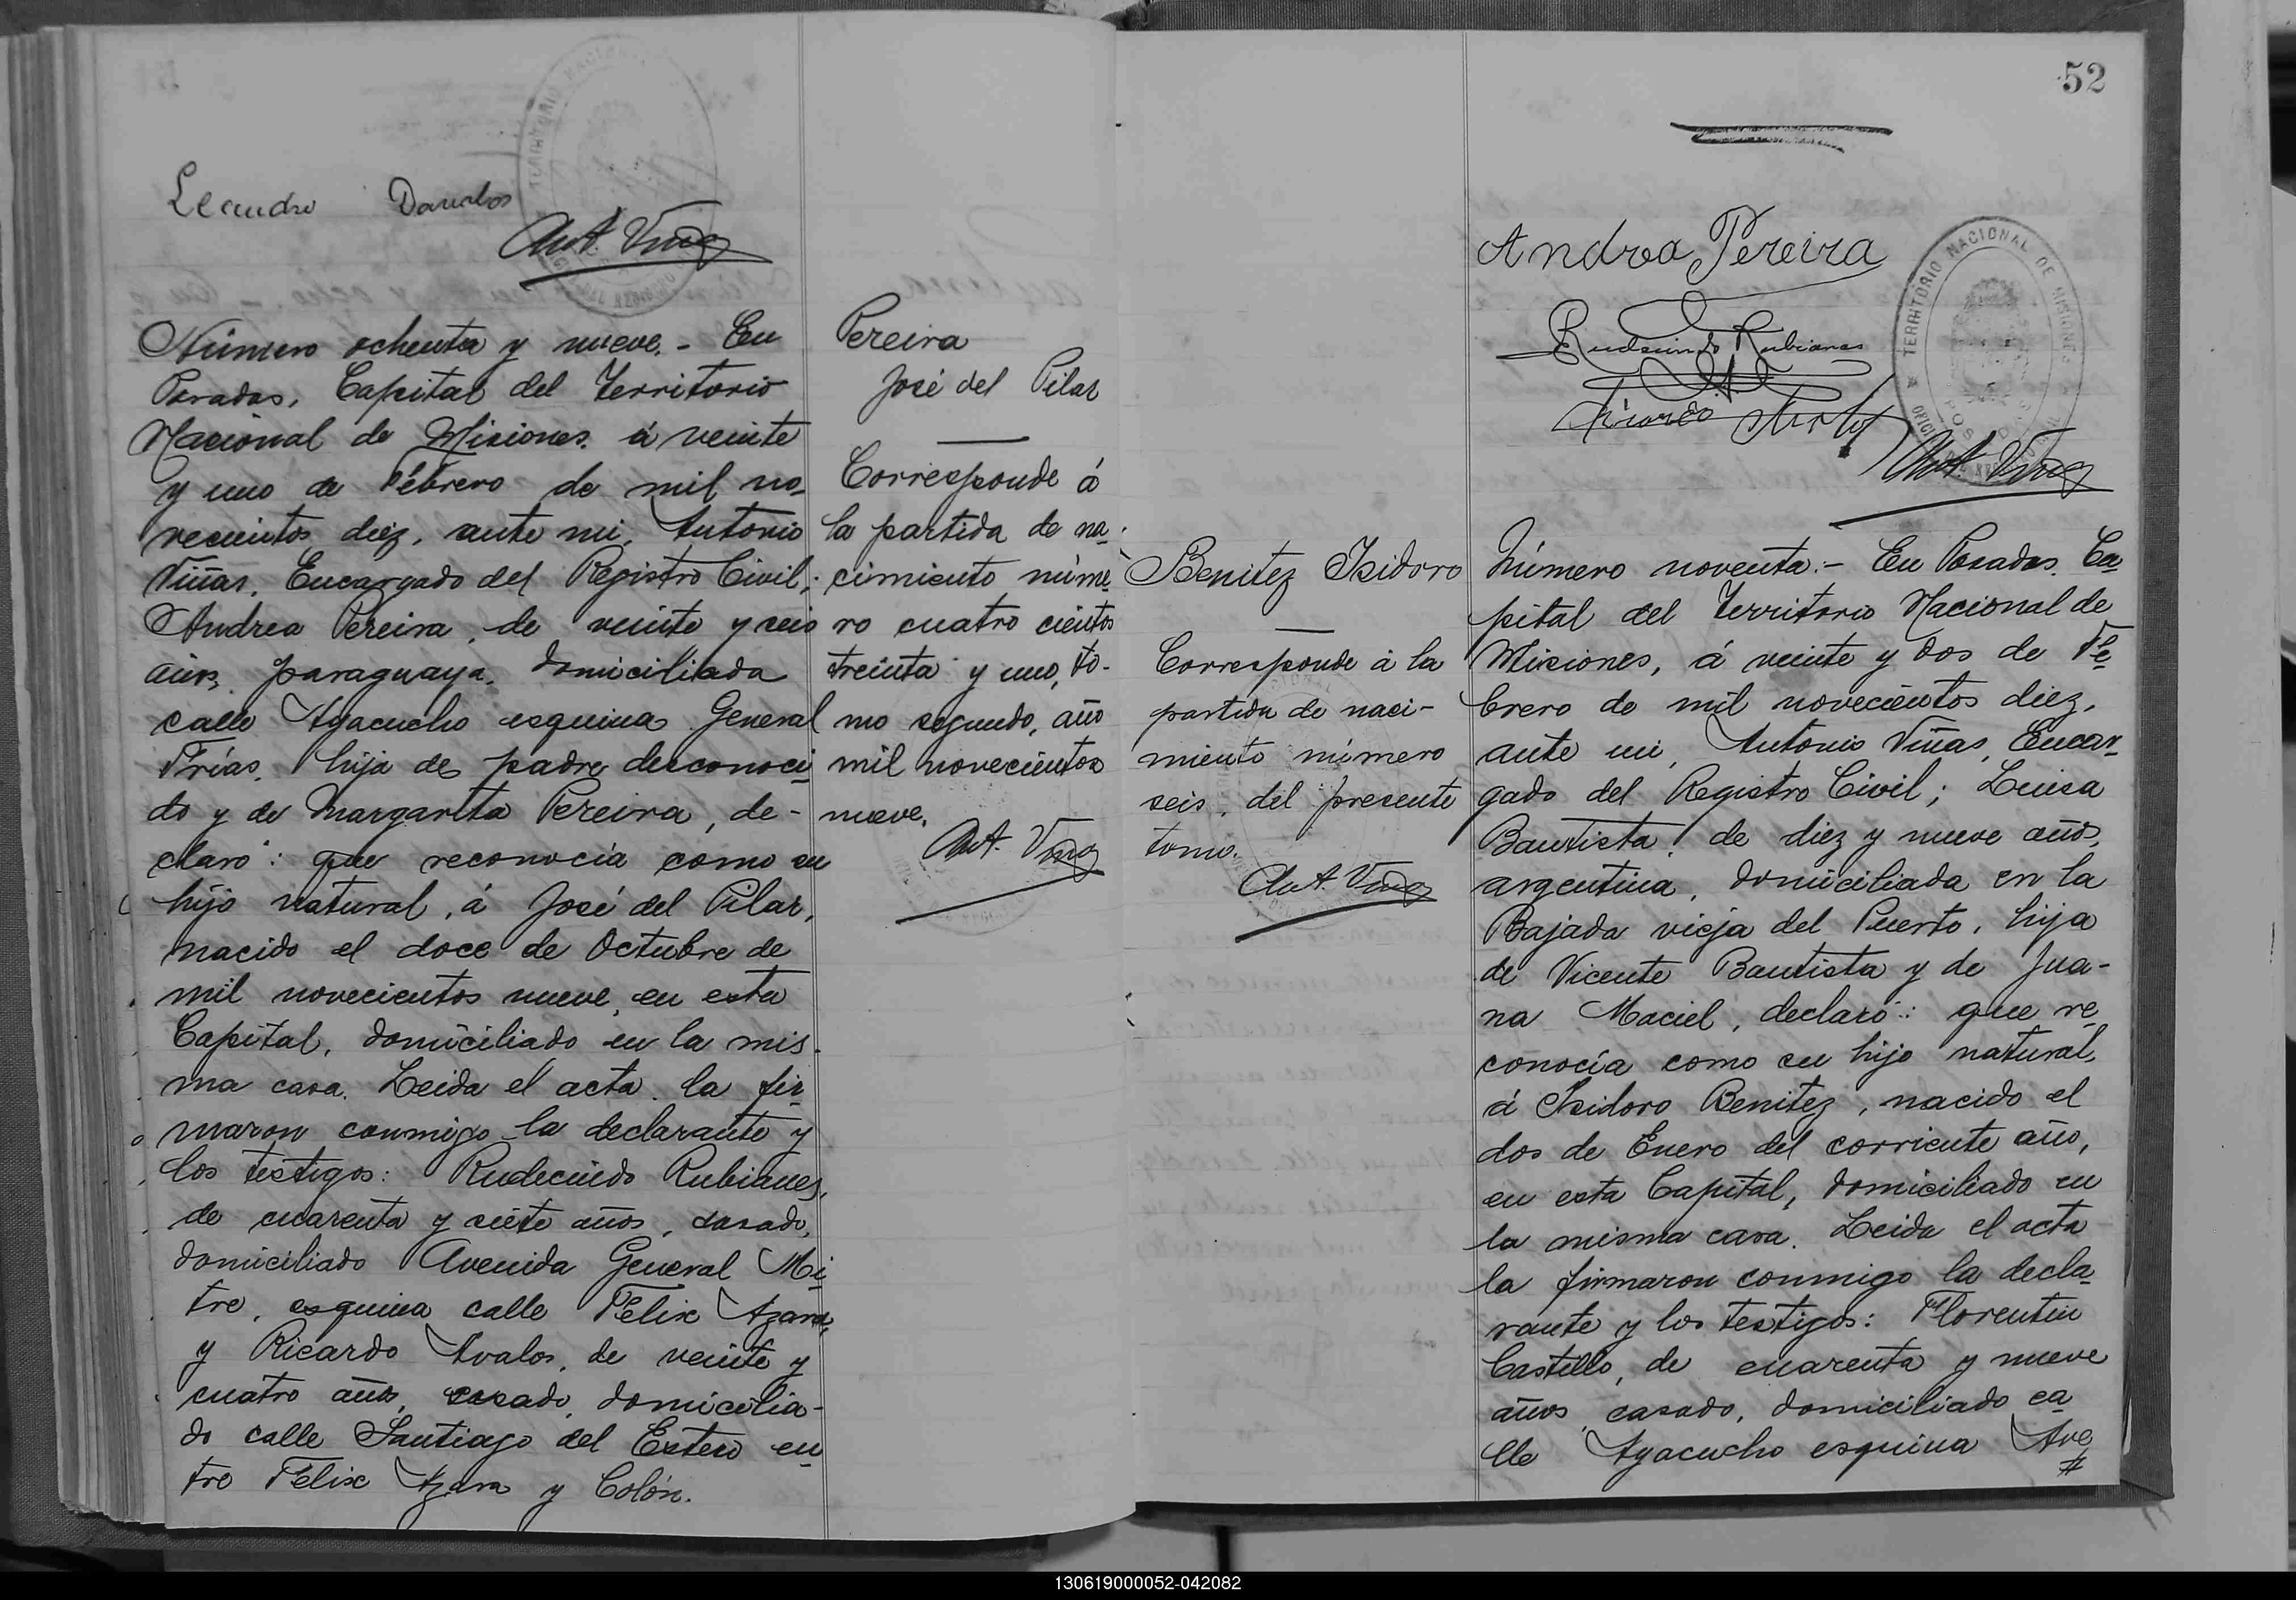 Leandro Davalos
Ant. Viñas
Número ochenta y nueve. - En
Posadas, Capital del Territorio
Nacional de Misiones, á veinte
y uno de Febrero de mil no-
vecientos diez, ante mi, Antonio
Viñas, Encargado del Registro Civil;
Andrea Pereira, de veinte y seis
años, paraguaya, domiciliada
calle Ayacucho esquina General
Frías, hija de padre desconoci-
do y de Margarita Pereira, de-
claró: que reconocía como su
hijo natural, á José del Pilar,
nacido el doce de Octubre de
mil novecientos nueve, en esta
Capital, domiciliado en la mis-
ma casa. Leida el acta, la fir-
maron conmigo la declarante y
los testigos: Rudecindo Rubianes,
de cuarenta y siete años, casado,
domiciliado Avenida General Mi-
tre, esquina calle Felix Azara,
y Ricardo Avalos, de veinte y
cuatro años, casado, domicilia-
do calle Santiago del Estero en-
tre Felix Azara y Colón.
Pereira
José del Pilar
Corresponde á
la partida de na-
cimiento núme-
ro cuatro cientos
treinta y uno, to-
mo segundo, año
mil novecientos
nueve.
Ant. Viñas
52
Andrea Pereira
Rudecindo Rubianes
Ricardo Avalos
Ant. Viñas
TERRITORIO NACIONAL DE MISIONES
Benitez Isidoro
Corresponde á la
partida de naci-
miento número
seis, del presente
tomo.
Ant. Viñas
Número noventa. - En Posadas, Ca-
pital del Territorio Nacional de
Misiones, á veinte y dos de Fe-
brero de mil novecientos diez,
ante mi, Antonio Viñas, Encar-
gado del Registro Civil; Luisa
Bautista, de diez y nueve años,
argentina, domiciliada en la
Bajada vieja del Puerto, hija
de Vicente Bautista y de Jua-
na Maciel, declaró: que re-
conocía como su hijo natural,
á Isidoro Benitez, nacido el
dos de Enero del corriente año,
en esta Capital, domiciliado en
la misma casa. Leida el acta
la firmaron conmigo la decla-
rante y los testigos: Florentin
Castello, de cuarenta y nueve
años, casado, domiciliado ca-
lle Ayacucho esquina Ave
130619000052-042082